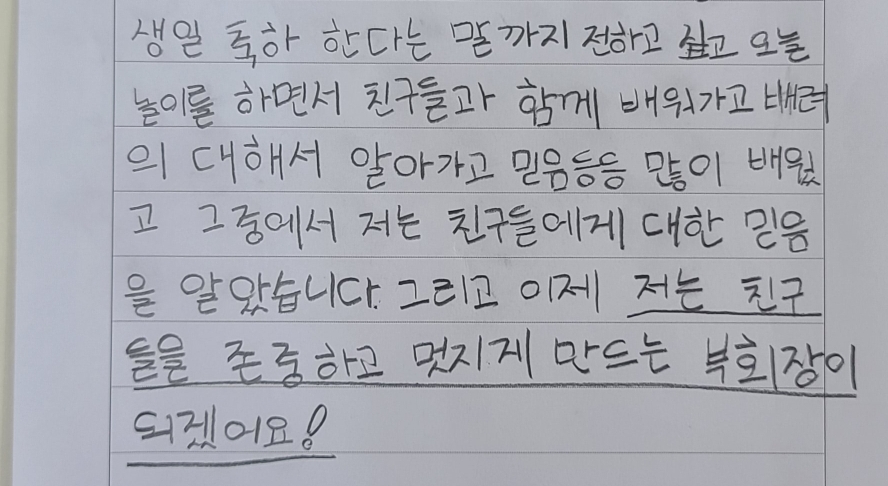 생일 축하 한다는 말까지 전하고 싶고 오늘
놀이를 하면서 친구들과 함께 배워가고 배려
의 대해서 알아가고 믿음등등 많이 배웠
고 그중에서 저는 친구들에게 대한 믿음
을 알았습니다. 그리고 이제 저는 친구
들을 존중하고 멋지게 만드는 부회장이
되겠어요!